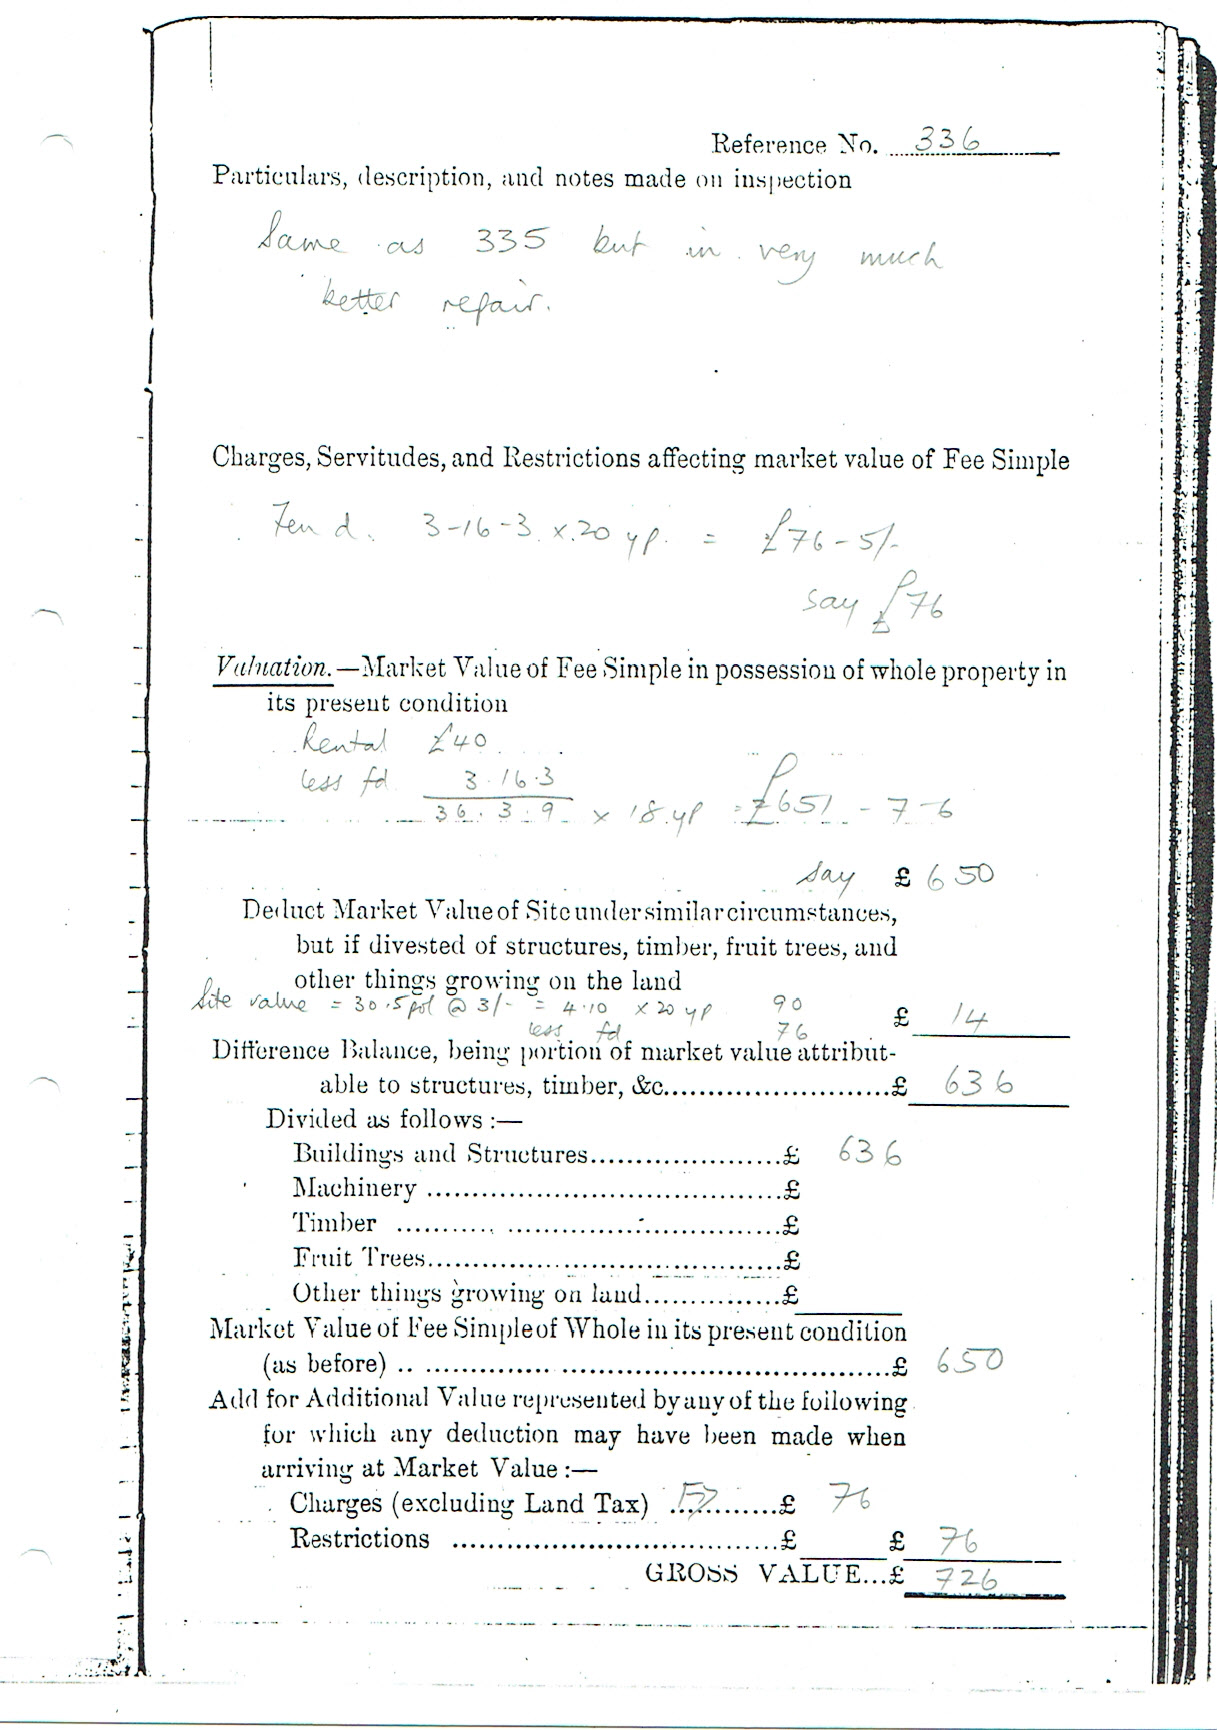 Reference No. 336
Particulars, description, and notes made on inspection
Same as 335 but in very much
better repair.
Charges, Servitudes, and Restrictions affecting market value of Fee Simple
3-16-3 x 20 yp. = £76-5/-
say £76
Valuation.—Market Value of Fee Simple in possession of whole property in
its present condition
Rental £40
less fd. 3.16.3
36.3.9 x 18 yp = £651-7-6
say £650
Deduct Market Value of Site under similar circumstances,
but if divested of structures, timber, fruit trees, and
other things growing on the land
Site value = 30.5 pol @ 3/- = 4.10 x 20 yp 90
less fd 76 £ 14
Difference Balance, being portion of market value attribut-
able to structures, timber, &c.........................£ 636
Divided as follows :—
Buildings and Structures......................£ 636
Machinery ........................................£
Timber ........................................£
Fruit Trees........................................£
Other things growing on land................£
Market Value of Fee Simple of Whole in its present condition
(as before) ........................................£ 650
Add for Additional Value represented by any of the following
for which any deduction may have been made when
arriving at Market Value :—
Charges (excluding Land Tax) ............£ 76
Restrictions ....................................£ £ 76
GROSS VALUE...£ 726